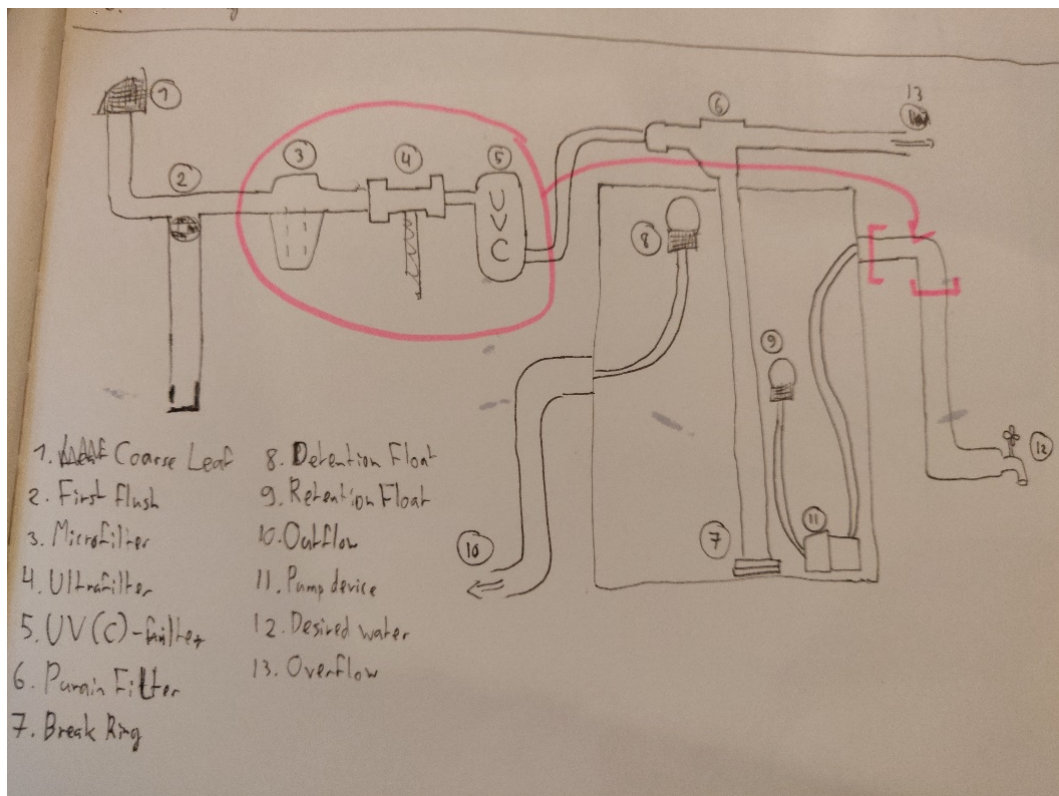 1
2
3
4
5
6
13
U
V
C
8
9
7
10
11
12
1. Coarse Leaf
2. First flush
3. Microfilter
4. Ultrafilter
5. UV(C)-filter
6. Purain Filter
7. Break Ring
8. Detention Float
9. Retention Float
10. Outflow
11. Pump device
12. Desired water
13. Overflow